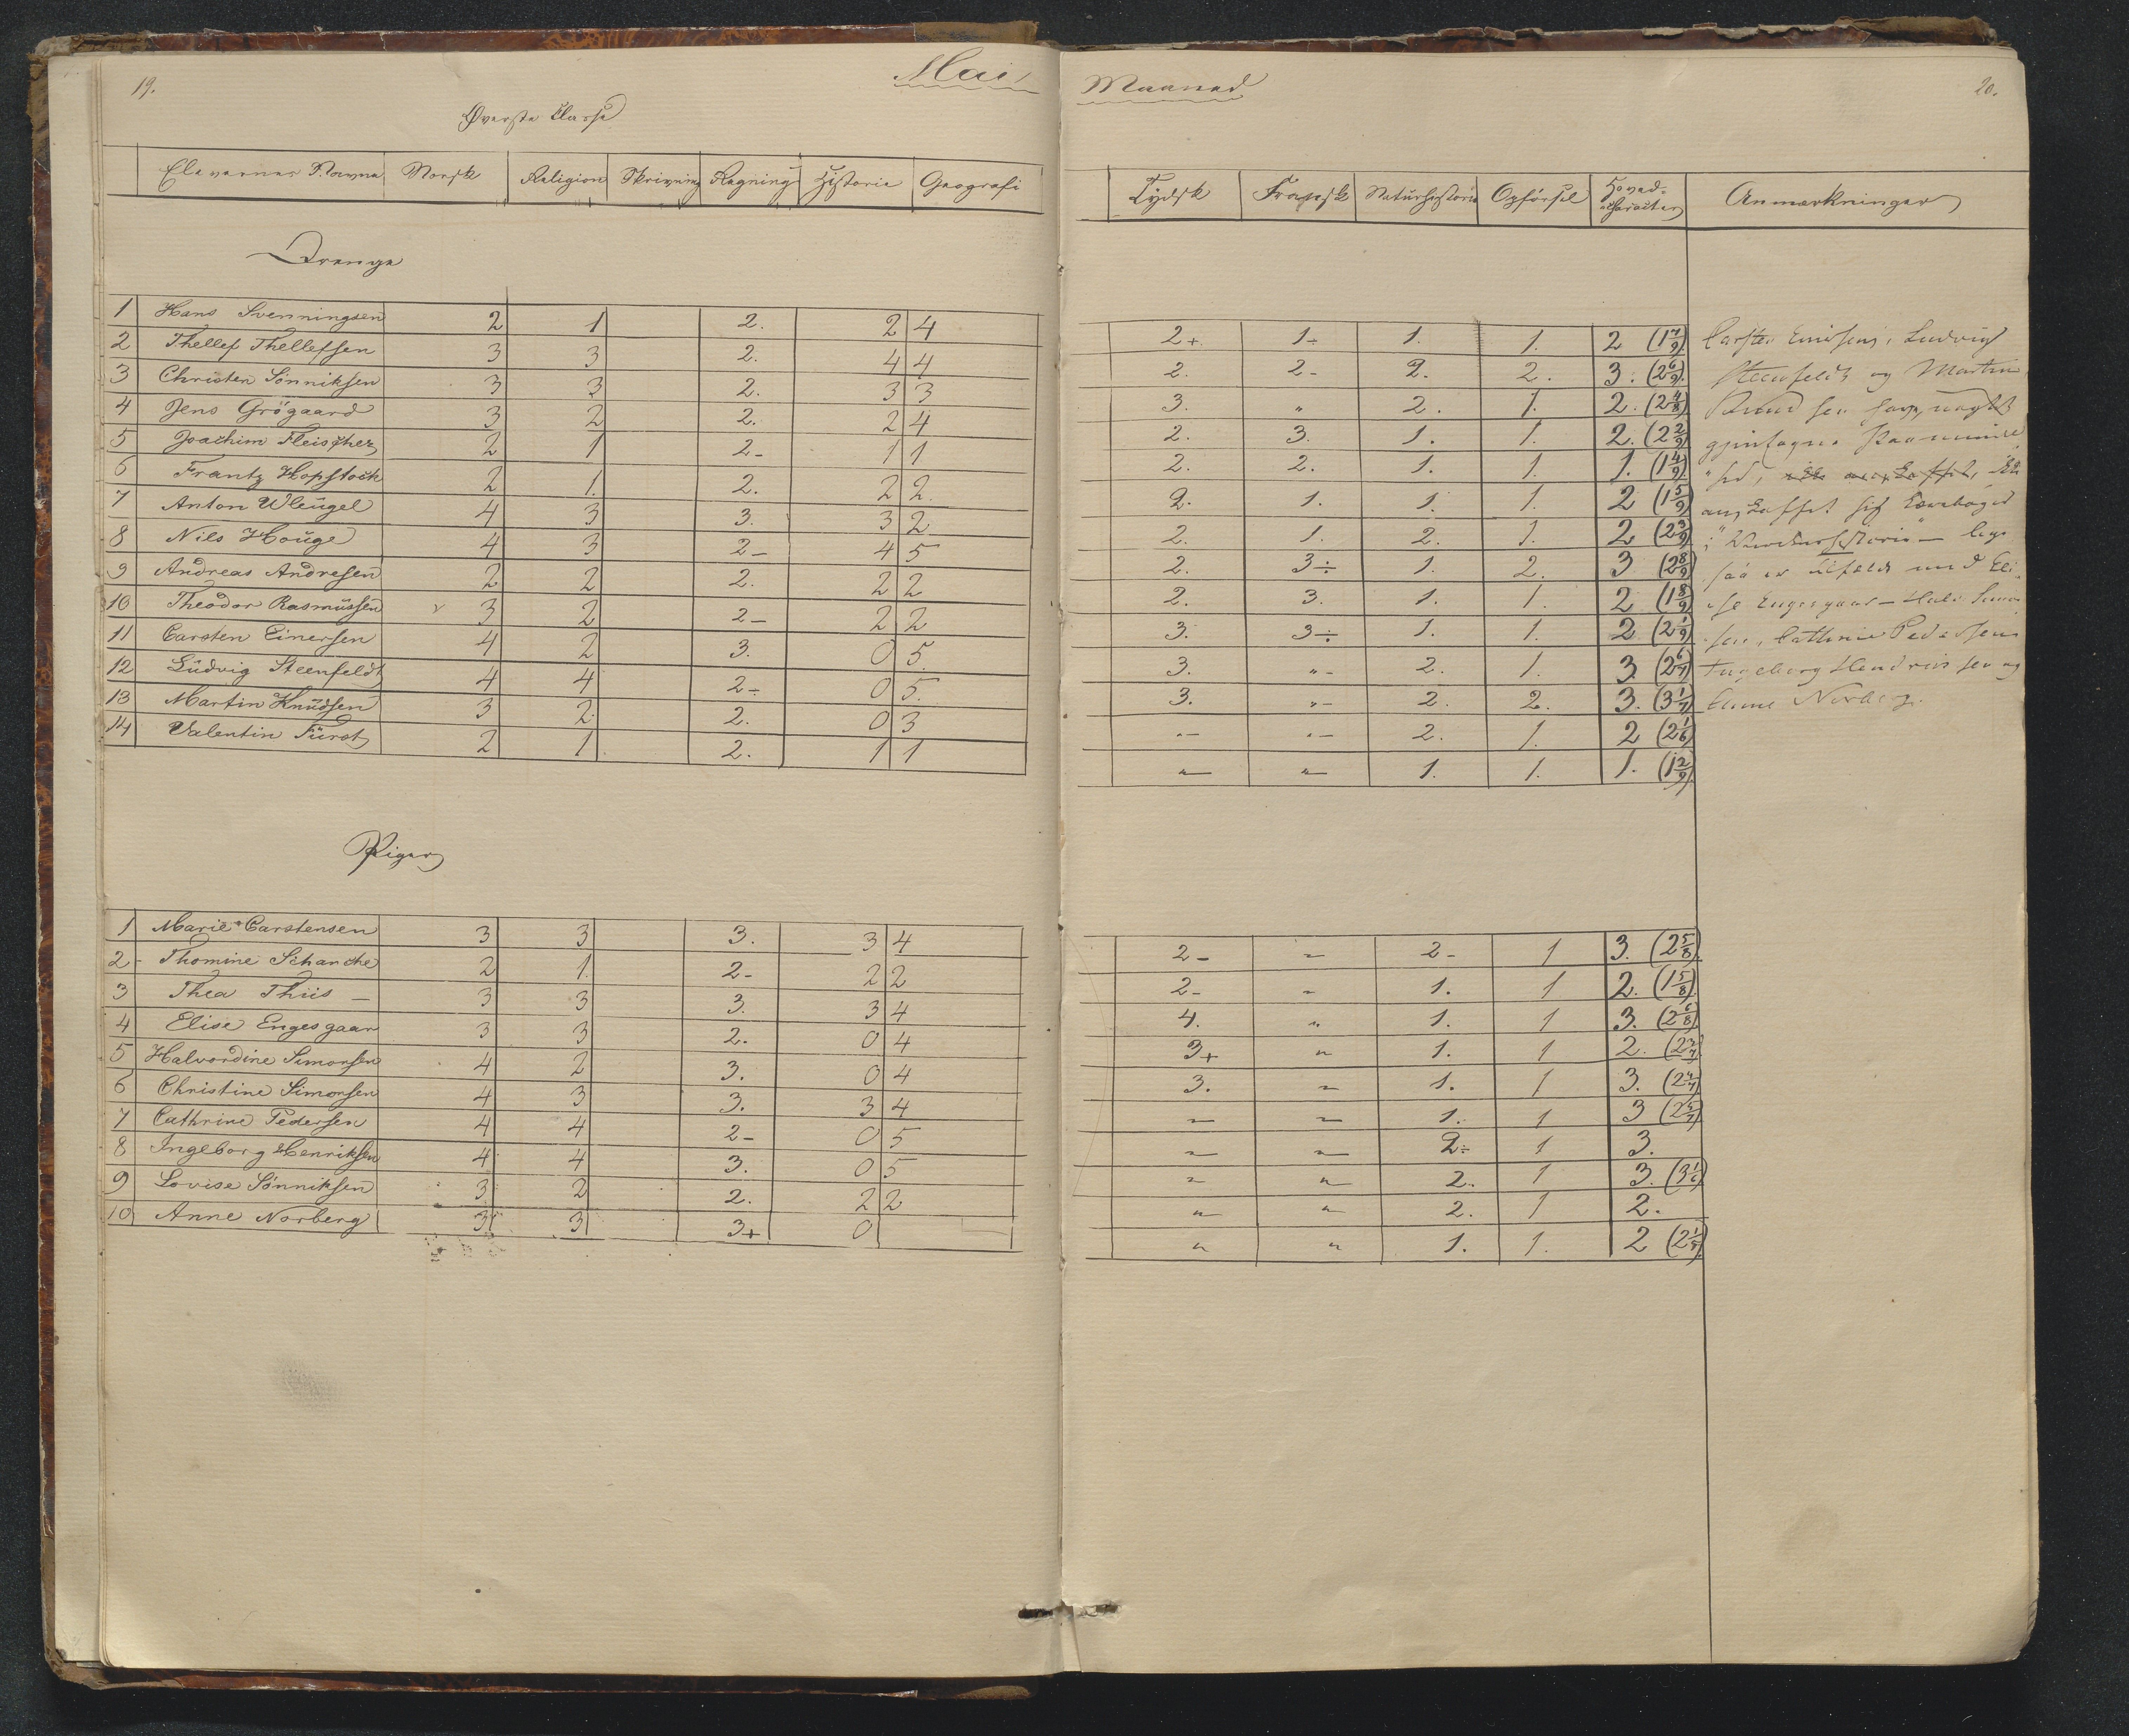 19.
Mai
Øverste Classe
Elevernes Navne Norsk Religion Skrivning Regning Historie Geografi
Drenge
1 Hans Svenningsen 2 1 2. 2 4
2 Thellef Thellefsen 3 3 2. 4 4
3 Christen Sønniksen 3 3 2. 3 3
4 Jens Grögaard 3 2 2. 2 4
5 Joachim Fleischer 2 1 2- 1 1
6 Frantz Hopstock 2 1. 2. 2 2.
7 Anton Wleügel 4 3 3. 3 2
8 Nils Houge 4 3 2- 4 5
9 Andreas Andresen 2 2 2. 2 2
10 Theodor Rasmüssen 3 2 2- 2 2
11 Carsten Einersen 4 2 3. 0 5.
12 Lüdvig Steenfeldt 4 4 2÷ 0 5.
13 Martin Knüdsen 3 2 2. 0 3
14 Valentin Fürst 2 1. 2. 1 1
Piger
1 Marie Carstensen 3 3 3. 3 4
2 Thomine Schanche 2 1. 2- 2 2
3 Thea Thiis - 3 3 3. 3 4
4 Elise Engesgaar 3 3 2. 0 4
5 Halvordine Simonsen 4 2 3. 0 4
6 Christine Simonsen 4 3 3. 3 4
7 Cathrine Pedersen 4 4 2- 0 5
8 Ingeborg Henriksen 4 4 3. 0 5
9 Lovise Sönniksen 3 2 2. 2 2
10 Anne Norberg 3 3 3+ 0
Maaned
20.
Tydsk Fransk Naturhistorie Opförsel Hoved-charakter Anmærkninger
2+ 1÷ 1. 1. 2 (1 7/9)
2. 2- 2. 2. 3. (2 6/9).
3. " 2. 1. 2. (2 4/8)
2. 3. 1. 1. 2. (2 2/9)
2. 2. 1. 1. 1. (1 4/9)
2. 1. 1. 1. 2 (1 5/9)
2. 1. 2. 1. 2 (2 3/9)
2. 3÷ 1. 2. 3 (2 8/9)
2. 3. 1. 1. 2 (1 8/9)
3. 3÷ 1. 1. 2 (2 1/9)
3. " - 2. 1. 3 (2 6/7)
3. " - 2. 2. 3. (3 1/7)
" - " - 2. 1. 2 (2 1/6)
" " 1. 1. 1. (1 2/9).
Carsten Einersen, Ludvig
Steenfeldt og Martin
Knudsen have,
Lærebøger
"
saa er Tilfældet med Eli-
se Engesgaar - Hal. Simon
sen, Cathrine Pedersen
Ingeborg Hendriksen og
Anne Norberg.
2- " 2- 1 3. (2 5/8).
2- " 1. 1 2. (1 5/8).
4. " 1. 1 3. (2 6/8)
3+ " 1. 1 2. (2 2/7)
3. " 1. 1 3. (2 4/7)
" " 1. 1 3
" " 2÷ 1 3.
" " 2. 1 3. (3 1/6)
" " 2. 1 2.
" " 1. 1. 2